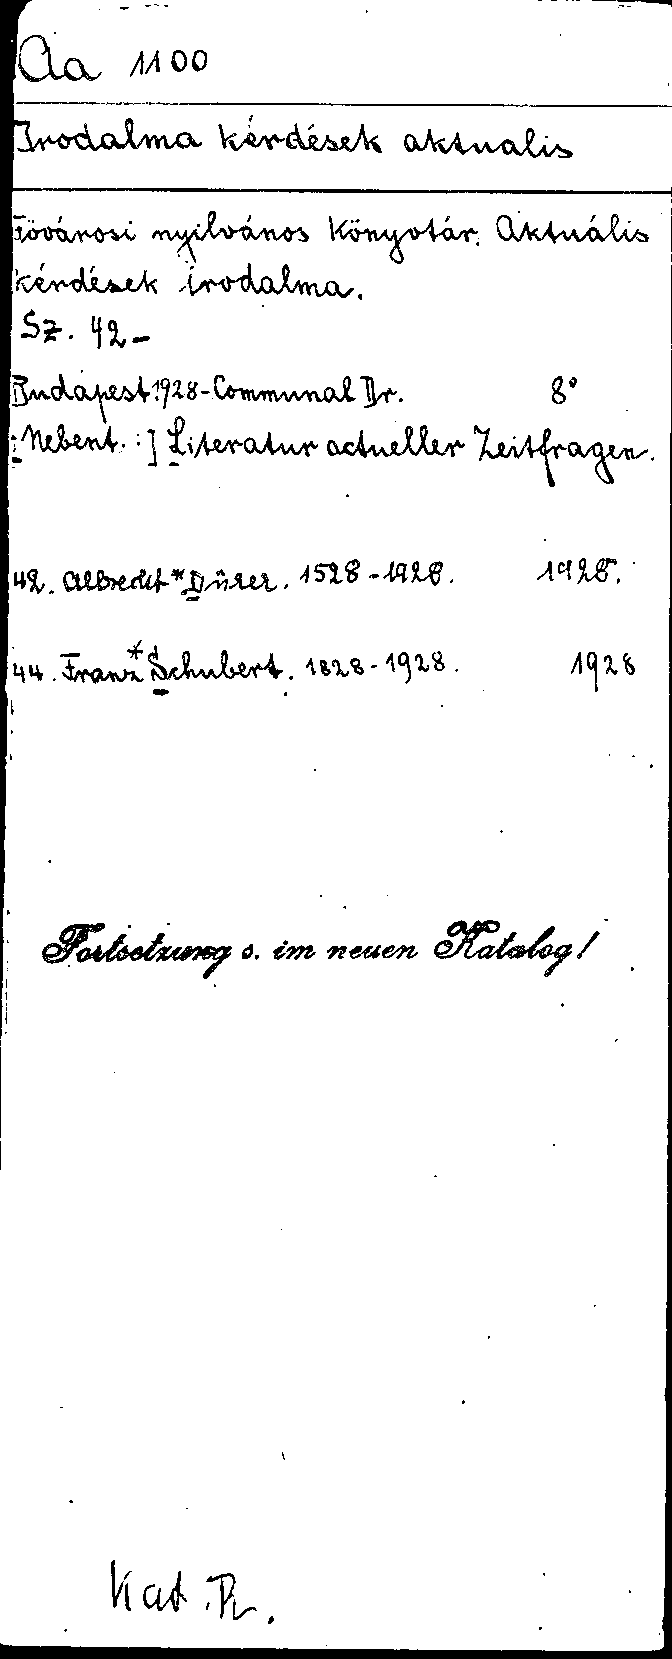 Aa 1100
Irodalma kérdések aktualis
Fövárosi nyilvános Könyvtár. Aktuális
kérdések irodalma.
Sz. 42-
Budapest 1928- Communal Dr. 8°
[Nebent.:] Literatur actueller Zeitfragen.
42. Albrecht *Dürer. 1528-1928. 1928.
44. Franz *Schubert. 1828-1928. 1928
Fortsetzung s. im neuen Katalog!
Kat.